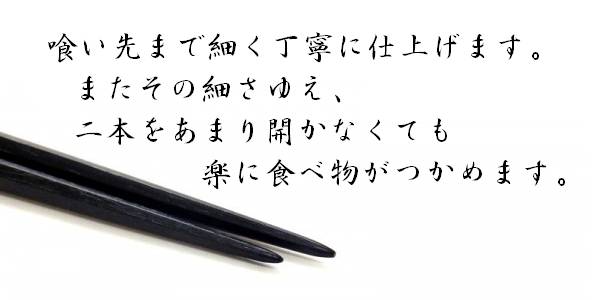 喰い先まで細く丁寧に仕上げます。
またその細さゆえ、
二本をあまり開かなくても
楽に食べ物がつかめます。